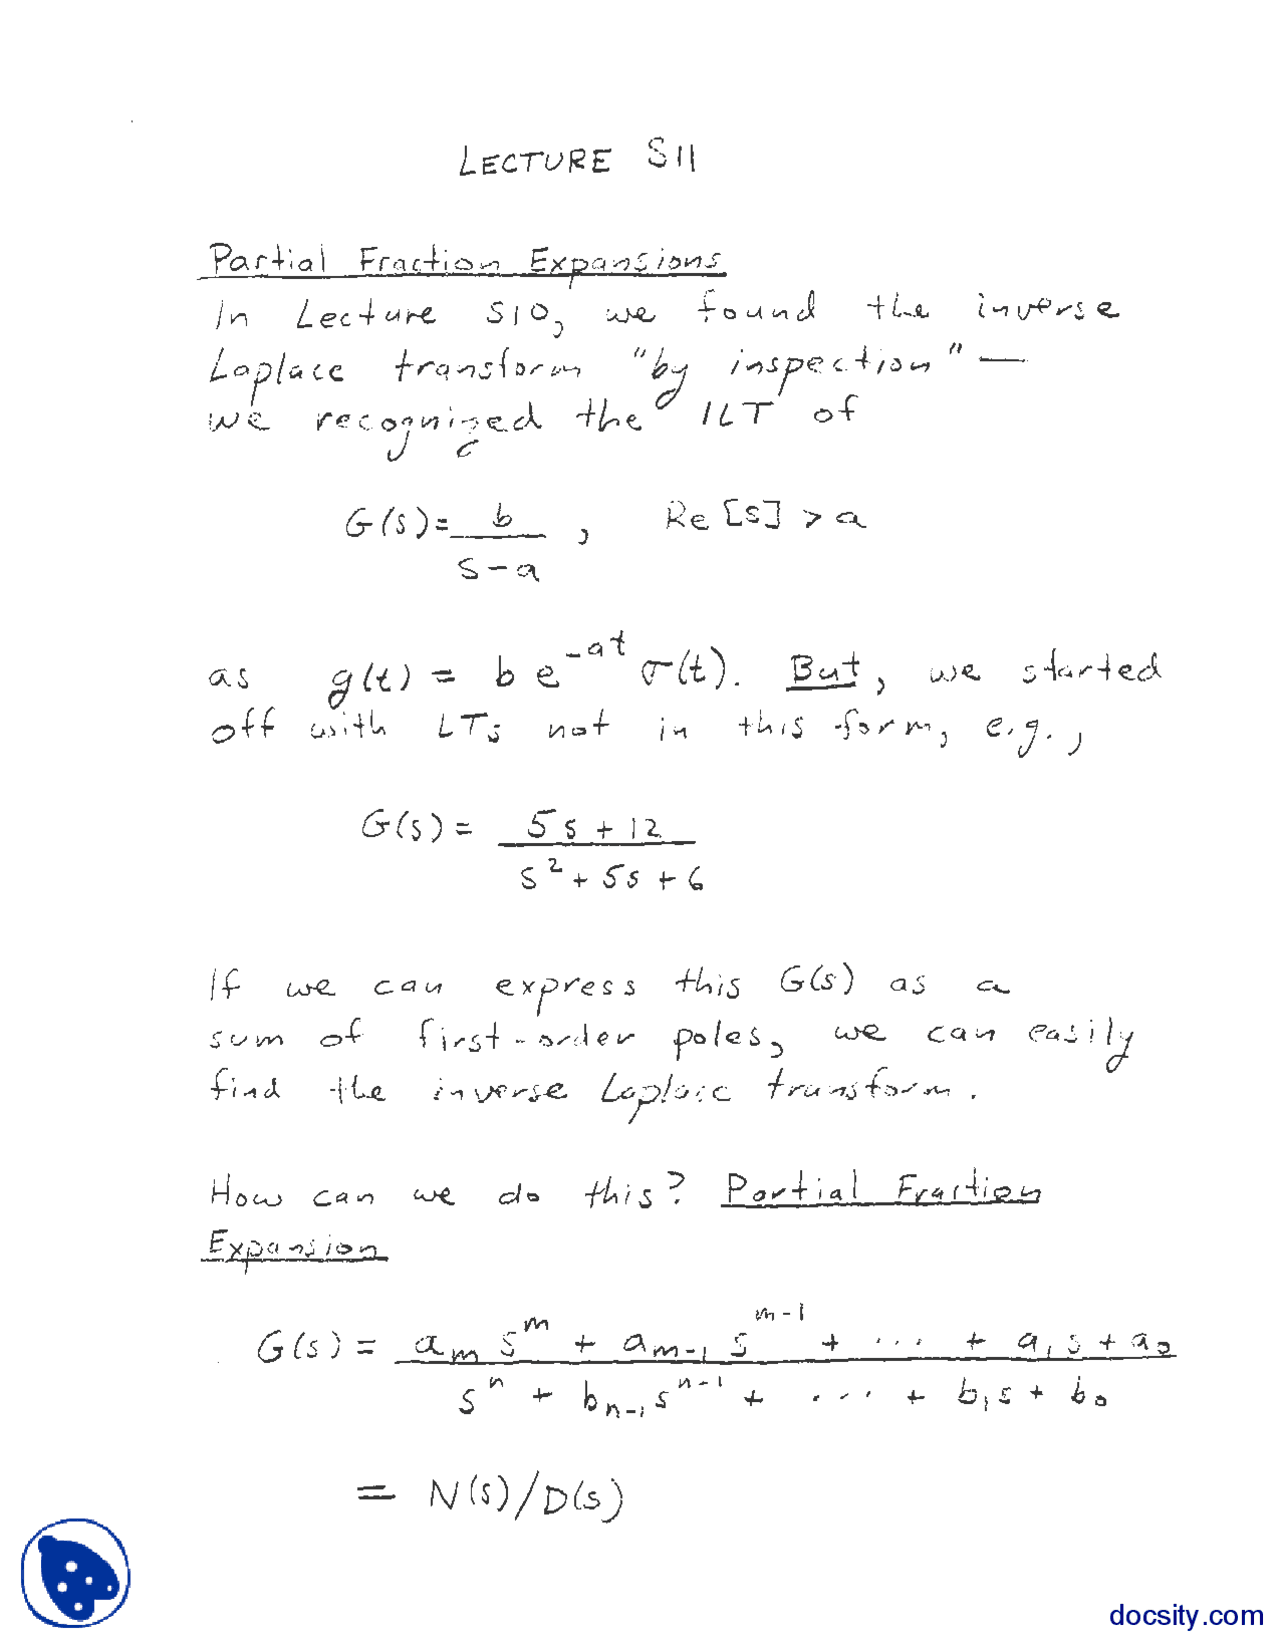 LECTURE S11
Partial Fraction Expansions
In Lecture S10, we found the inverse
Laplace transform "by inspection" —
we recognized the ILT of
G(s) = b / (s - a) , Re[s] > a
as g(t) = b e^{-at} σ(t). But, we started
off with LTs not in this form, e.g.,
G(s) = (5s + 12) / (s² + 5s + 6)
If we can express this G(s) as a
sum of first-order poles, we can easily
find the inverse Laplace transform.
How can we do this? Partial Fraction
Expansion
G(s) = (a_m s^m + a_{m-1} s^{m-1} + ... + a_1 s + a_0) / (s^n + b_{n-1} s^{n-1} + ... + b_1 s + b_0)
= N(s)/D(s)
docsity.com